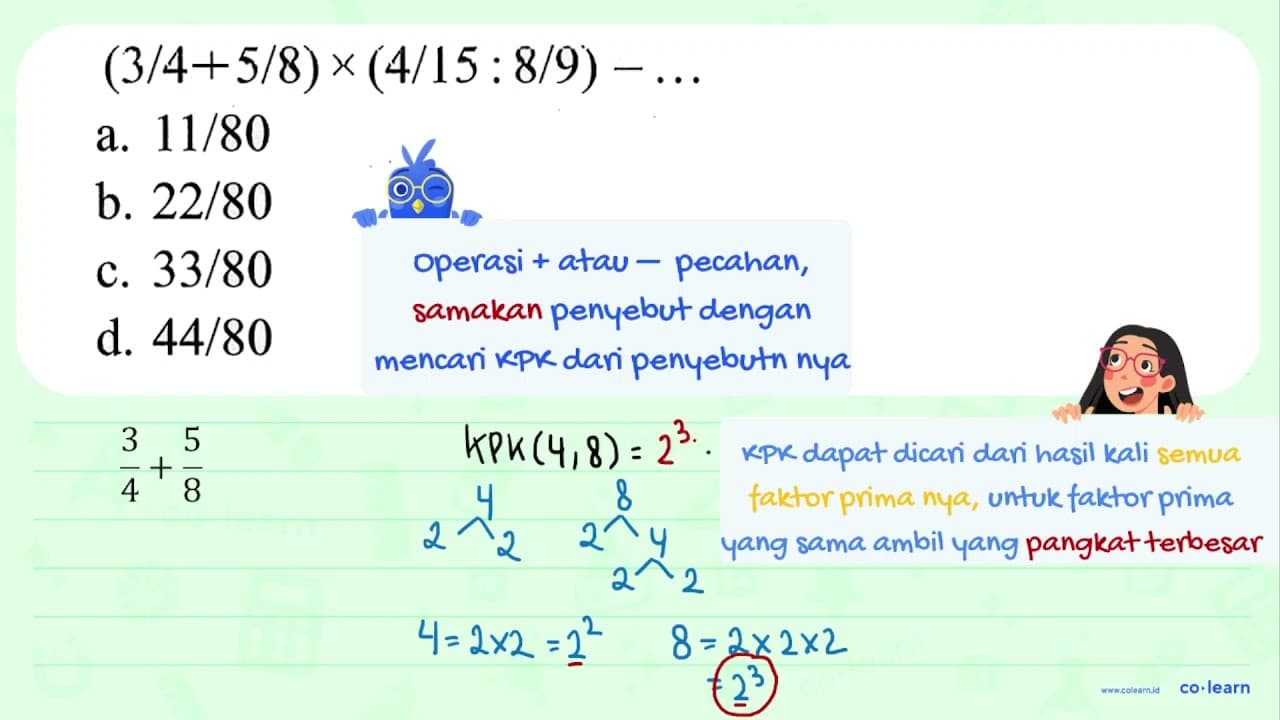 (3/4+5/8)×(4/15:8/9)−...
a. 11/80
b. 22/80
c. 33/80
d. 44/80
Operasi + atau − pecahan,
samakan penyebut dengan
mencari KPK dari penyebutn nya
3/4 + 5/8
KPK(4,8) = 2³.
KPK dapat dicari dari hasil kali semua
faktor prima nya, untuk faktor prima
yang sama ambil yang pangkat terbesar
4 8
2 2 2 4
2 2
4 = 2×2 = 2² 8 = 2×2×2
= 2³
www.colearn.id co·learn